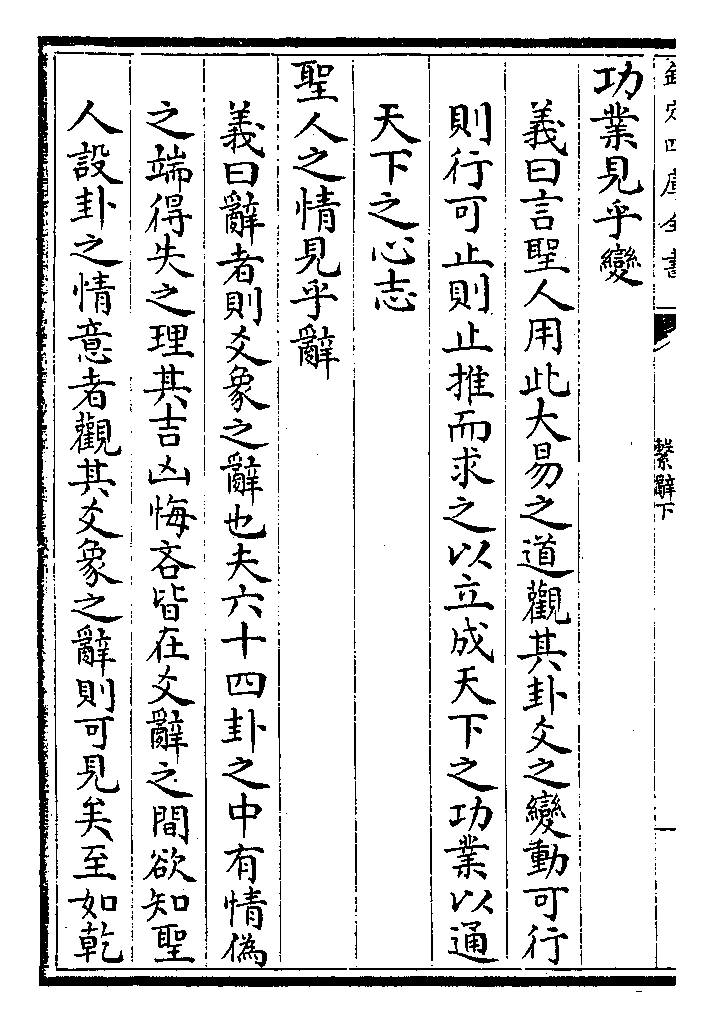 欽定四庫全書
繫辭下
功業見乎變
義曰言聖人用此大易之道觀其卦爻之變動可行
則行可止則止推而求之以立成天下之功業以通
天下之心志
聖人之情見乎辭
義曰辭者則爻象之辭也夫六十四卦之中有情偽
之端得失之理其吉凶悔吝皆在爻辭之間欲知聖
人設卦之情意者觀其爻象之辭則可見矣至如乾